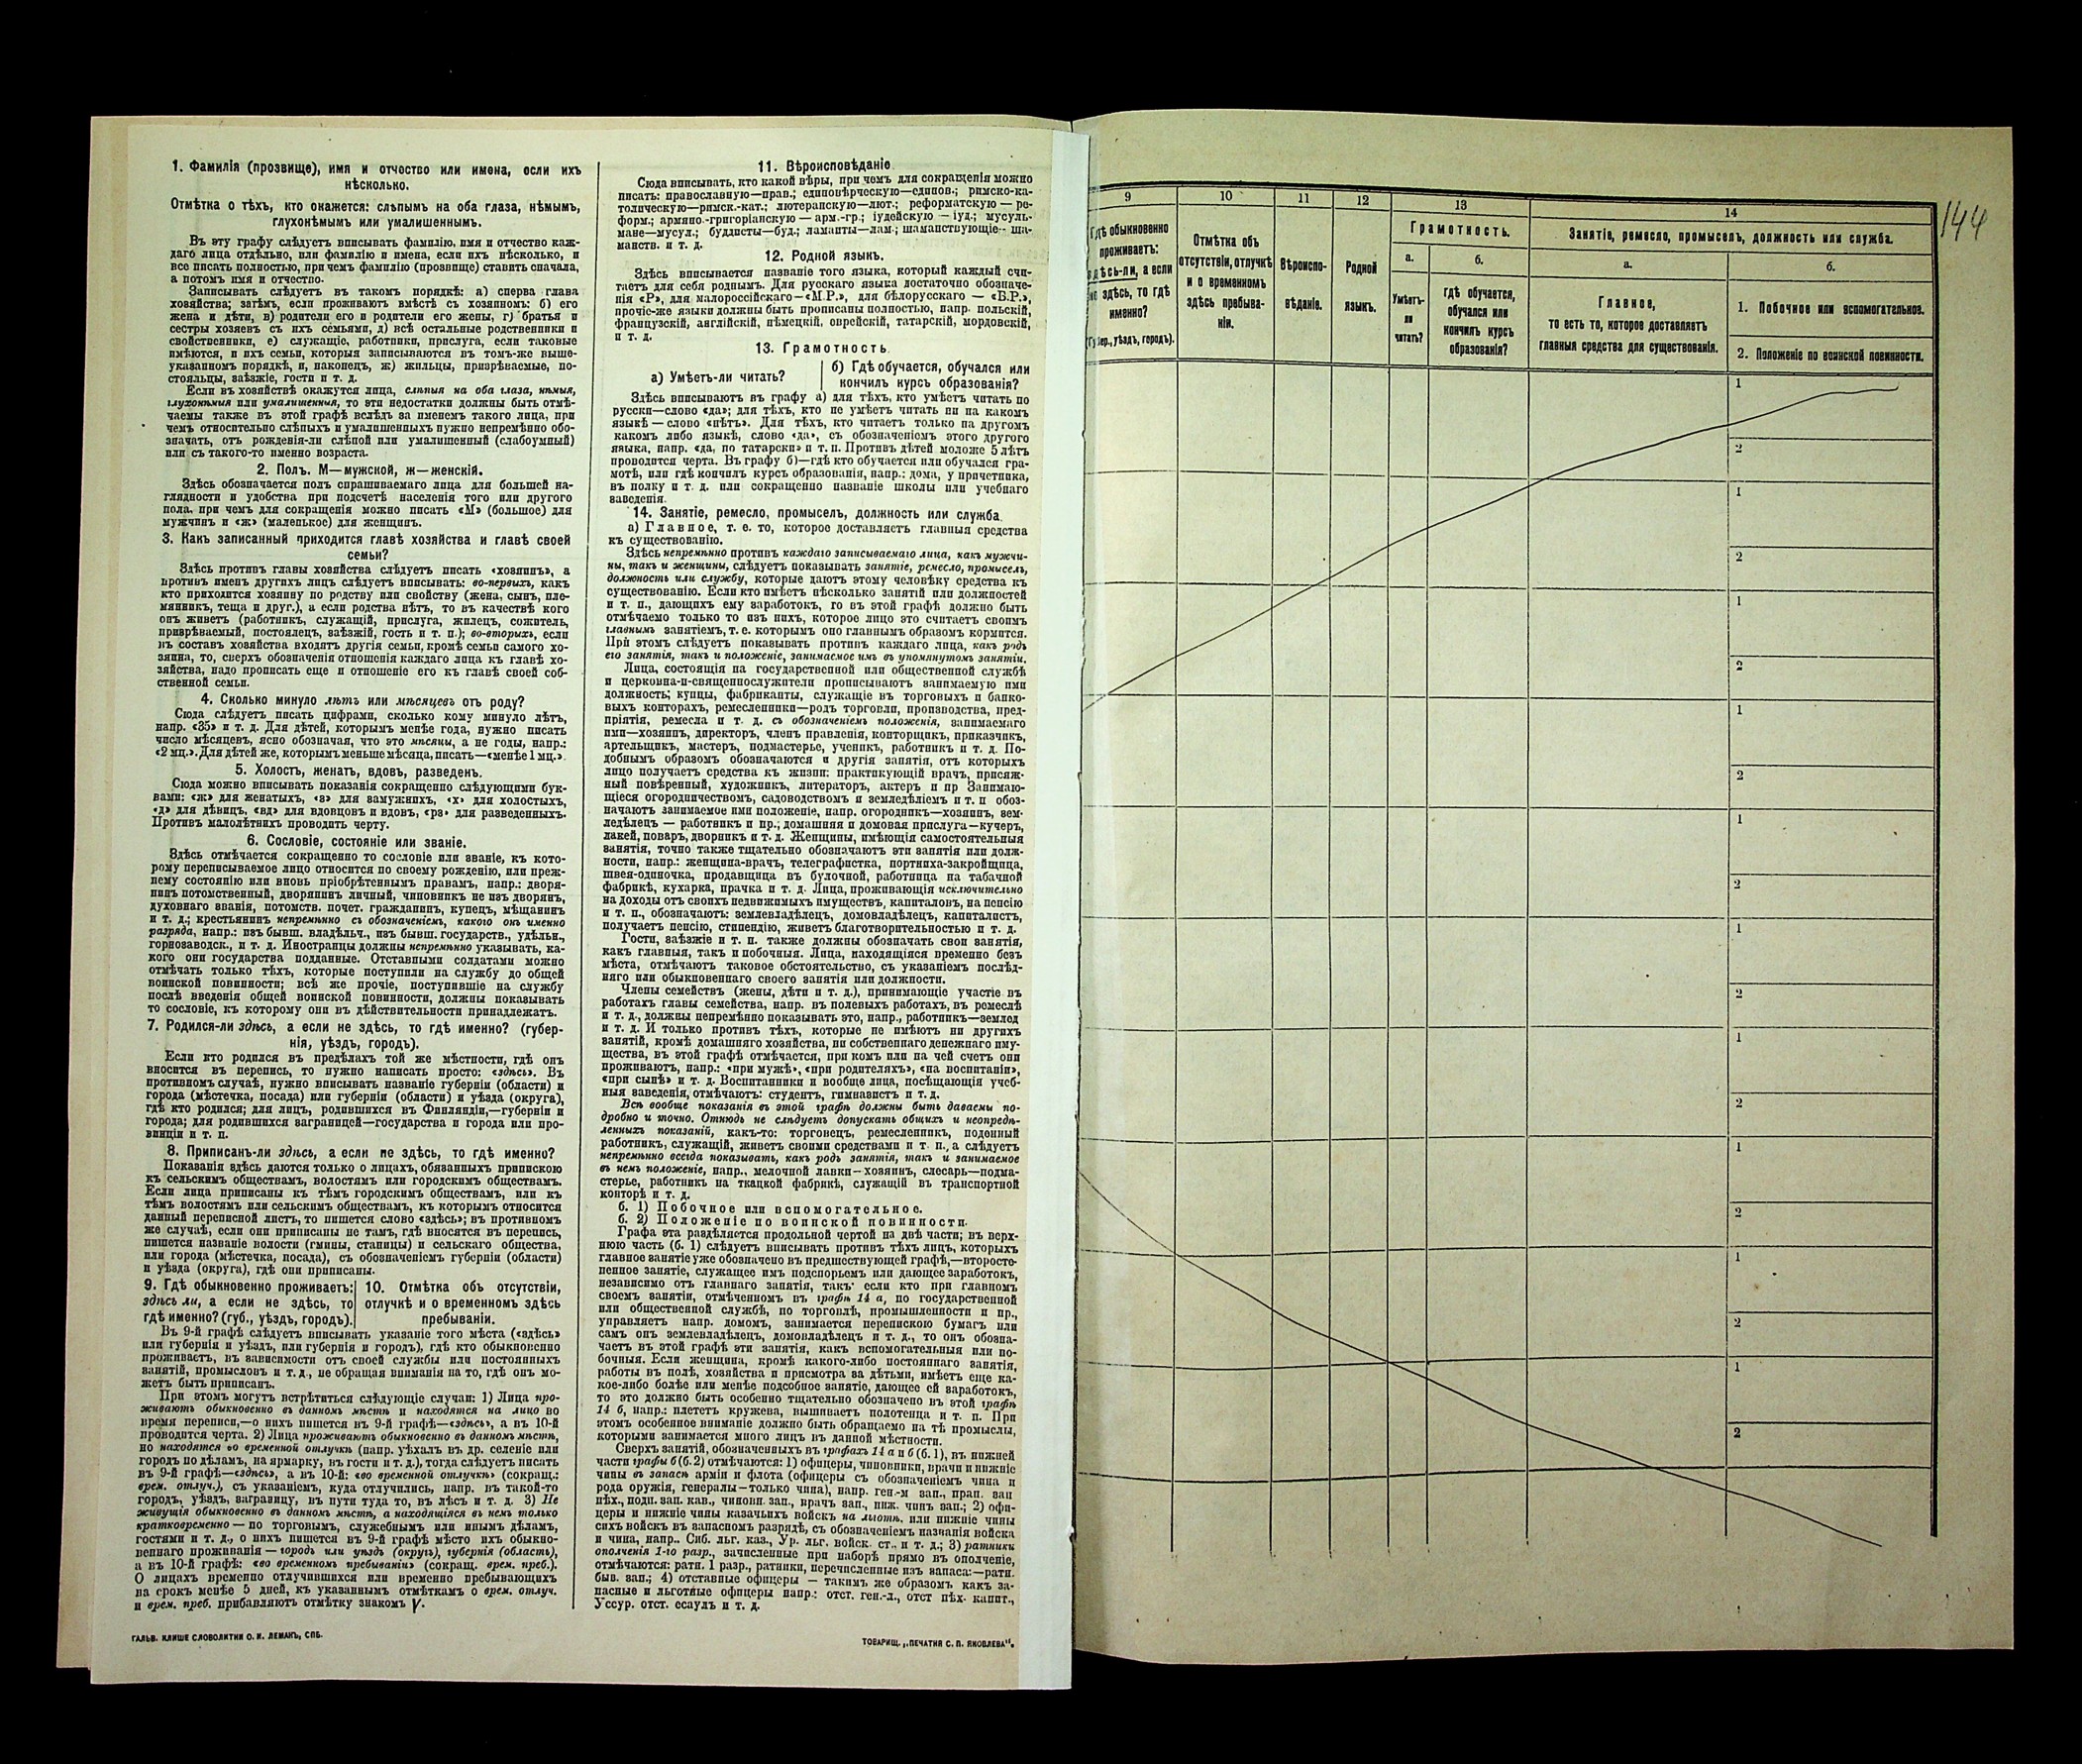 1. Фамилія (прозвище), имя и отчество или имена, если ихъ
нѣсколько.
Отмѣтка о тѣхъ, кто окажется: слѣпымъ на оба глаза, нѣмымъ,
глухонѣмымъ или умалишеннымъ.
Въ эту графу слѣдуетъ вписывать фамилію, имя и отчество каж-
даго лица отдѣльно, или фамилію и имена, если ихъ нѣсколько, и
все писать полностью, при чемъ фамилію (прозвище) ставить сначала,
а потомъ имя и отчество.
Записывать слѣдуетъ въ такомъ порядкѣ: а) сперва глава
хозяйства; затѣмъ, если проживаютъ вмѣстѣ съ хозяиномъ: б) его
жена и дѣти, в) родители его и родители его жены, г) братья и
сестры хозяевъ съ ихъ семьями, д) всѣ остальные родственники и
свойственники, е) служащіе, работники, прислуга, если таковые
имѣются, и ихъ семьи, которыя записываются въ томъ-же выше-
указанномъ порядкѣ, и, наконецъ, ж) жильцы, призрѣваемые, по-
стояльцы, заѣзжіе, гости и т. д.
Если въ хозяйствѣ окажутся лица, слѣпыя на оба глаза, нѣмыя,
глухонѣмыя или умалишенныя, то эти недостатки должны быть отмѣ-
чаемы также въ этой графѣ вслѣдъ за именемъ такого лица, при
чемъ относительно слѣпыхъ и умалишенныхъ нужно непремѣнно обо-
значать, отъ рожденія-ли слѣпой или умалишенный (слабоумный)
или съ такого-то именно возраста.
2. Полъ. М—мужской, ж—женскій.
Здѣсь обозначается полъ спрашиваемаго лица для большей на-
глядности и удобства при подсчетѣ населенія того или другого
пола, при чемъ для сокращенія можно писать «М» (большое) для
мужчинъ и «ж» (маленькое) для женщинъ.
3. Какъ записанный приходится главѣ хозяйства и главѣ своей
семьи?
Здѣсь противъ главы хозяйства слѣдуетъ писать «хозяинъ», а
противъ именъ другихъ лицъ слѣдуетъ вписывать: во-первыхъ, какъ
кто приходится хозяину по родству или свойству (жена, сынъ, пле-
мянникъ, теща и друг.), а если родства нѣтъ, то въ качествѣ кого
онъ живетъ (работникъ, служащій, прислуга, жилецъ, сожитель,
призрѣваемый, постоялецъ, заѣзжій, гость и т. п.); во-вторыхъ, если
въ составъ хозяйства входятъ другія семьи, кромѣ семьи самого хо-
зяина, то, сверхъ обозначенія отношенія каждаго лица къ главѣ хо-
зяйства, надо прописать еще и отношеніе его къ главѣ своей соб-
ственной семьи.
4. Сколько минуло лѣтъ или мѣсяцевъ отъ роду?
Сюда слѣдуетъ писать цифрами, сколько кому минуло лѣтъ,
напр. «35» и т. д. Для дѣтей, которымъ менѣе года, нужно писать
число мѣсяцевъ, ясно обозначая, что это мѣсяцы, а не годы, напр.:
«2 мц.». Для дѣтей же, которымъ меньше мѣсяца, писать—«менѣе 1 мц.».
5. Холостъ, женатъ, вдовъ, разведенъ.
Сюда можно вписывать показанія сокращенно слѣдующими бук-
вами: «ж» для женатыхъ, «з» для замужнихъ, «х» для холостыхъ,
«д» для дѣвицъ, «вд» для вдовцовъ и вдовъ, «рз» для разведенныхъ.
Противъ малолѣтнихъ проводить черту.
6. Сословіе, состояніе или званіе.
Здѣсь отмѣчается сокращенно то сословіе или званіе, къ кото-
рому переписываемое лицо относится по своему рожденію, или преж-
нему состоянію или вновь пріобрѣтеннымъ правамъ, напр.: дворя-
нинъ потомственный, дворянинъ личный, чиновникъ не изъ дворянъ,
духовнаго званія, потомств. почет. гражданинъ, купецъ, мѣщанинъ
и т. д.; крестьянинъ непремѣнно съ обозначеніемъ, какого онъ именно
разряда, напр.: изъ бывш. владѣльч., изъ бывш. государств., удѣльн.,
горнозаводск., и т. д. Иностранцы должны непремѣнно указывать, ка-
кого они государства подданные. Отставными солдатами можно
отмѣчать только тѣхъ, которые поступили на службу до общей
воинской повинности; всѣ же прочіе, поступившіе на службу
послѣ введенія общей воинской повинности, должны показывать
то сословіе, къ которому они въ дѣйствительности принадлежатъ.
7. Родился-ли здѣсь, а если не здѣсь, то гдѣ именно? (губер-
нія, уѣздъ, городъ).
Если кто родился въ предѣлахъ той же мѣстности, гдѣ онъ
вносится въ перепись, то нужно написать просто: «здѣсь». Въ
противномъ случаѣ, нужно вписывать названіе губерніи (области) и
города (мѣстечка, посада) или губерніи (области) и уѣзда (округа),
гдѣ кто родился; для лицъ, родившихся въ Финляндіи,—губерніи и
города; для родившихся заграницей—государства и города или про-
винціи и т. п.
8. Приписанъ-ли здѣсь, а если не здѣсь, то гдѣ именно?
Показанія здѣсь даются только о лицахъ, обязанныхъ припискою
къ сельскимъ обществамъ, волостямъ или городскимъ обществамъ.
Если лица приписаны къ тѣмъ городскимъ обществамъ, или къ
тѣмъ волостямъ или сельскимъ обществамъ, къ которымъ относится
данный переписной листъ, то пишется слово «здѣсь»; въ противномъ
же случаѣ, если они приписаны не тамъ, гдѣ вносятся въ перепись,
пишется названіе волости (гмины, станицы) и сельскаго общества,
или города (мѣстечка, посада), съ обозначеніемъ губерніи (области)
и уѣзда (округа), гдѣ они приписаны.
9. Гдѣ обыкновенно проживаетъ:
здѣсь ли, а если не здѣсь, то
гдѣ именно? (губ., уѣздъ, городъ).
10. Отмѣтка объ отсутствіи,
отлучкѣ и о временномъ здѣсь
пребываніи.
Въ 9-й графѣ слѣдуетъ вписывать указаніе того мѣста («здѣсь»
или губернія и уѣздъ, или губернія и городъ), гдѣ кто обыкновенно
проживаетъ, въ зависимости отъ своей службы или постоянныхъ
занятій, промысловъ и т. д., не обращая вниманія на то, гдѣ онъ мо-
жетъ быть приписанъ.
При этомъ могутъ встрѣтиться слѣдующіе случаи: 1) Лица про-
живаютъ обыкновенно въ данномъ мѣстѣ и находятся на лицо во
время переписи,—о нихъ пишется въ 9-й графѣ—«здѣсь», а въ 10-й
проводится черта. 2) Лица проживаютъ обыкновенно въ данномъ мѣстѣ,
но находятся во временной отлучкѣ (напр. уѣхалъ въ др. селеніе или
городъ по дѣламъ, на ярмарку, въ гости и т. д.), тогда слѣдуетъ писать
въ 9-й графѣ—«здѣсь», а въ 10-й: «во временной отлучкѣ» (сокращ.:
врем. отлуч.), съ указаніемъ, куда отлучились, напр. въ такой-то
городъ, уѣздъ, заграницу, въ пути туда то, въ лѣсъ и т. д. 3) Не
живущія обыкновенно въ данномъ мѣстѣ, а находящіяся въ немъ только
кратковременно — по торговымъ, служебнымъ или инымъ дѣламъ,
гостями и т. д., о нихъ пишется въ 9-й графѣ мѣсто ихъ обыкно-
веннаго проживанія — городъ или уѣздъ (округъ), губернія (область),
а въ 10-й графѣ: «во временномъ пребываніи» (сокращ. врем. преб.).
О лицахъ временно отлучившихся или временно пребывающихъ
на срокъ менѣе 5 дней, къ указаннымъ отмѣткамъ о врем. отлуч.
и врем. преб. прибавляютъ отмѣтку знакомъ V.
ГАЛЬВ. КЛИШЕ СЛОВОЛИТНИ О. И. ЛЕМАНЪ, СПБ.
11. Вѣроисповѣданіе
Сюда вписывать, кто какой вѣры, при чемъ для сокращенія можно
писать: православную—прав.; единовѣрческую—единов.; римско-ка-
толическую—римск.-кат.; лютеранскую—лют.; реформатскую — ре-
форм.; армяно.-григоріанскую — арм.-гр.; іудейскую — іуд.; мусуль-
мане—мусул.; буддисты—буд.; ламаиты—лам.; шаманствующіе— ша-
манств. и т. д.
12. Родной языкъ.
Здѣсь вписывается названіе того языка, который каждый счи-
таетъ для себя роднымъ. Для русскаго языка достаточно обозначе-
нія «Р», для малороссійскаго—«М.Р.», для бѣлорусскаго — «Б.Р.»,
прочіе-же языки должны быть прописаны полностью, напр. польскій,
французскій, англійскій, нѣмецкій, еврейскій, татарскій, мордовскій,
и т. д.
13. Грамотность
а) Умѣетъ-ли читать?
б) Гдѣ обучается, обучался или
кончилъ курсъ образованія?
Здѣсь вписываютъ въ графу а) для тѣхъ, кто умѣетъ читать по
русски—слово «да»; для тѣхъ, кто не умѣетъ читать ни на какомъ
языкѣ — слово «нѣтъ». Для тѣхъ, кто читаетъ только на другомъ
какомъ либо языкѣ, слово «да», съ обозначеніемъ этого другого
языка, напр. «да, по татарски» и т. п. Противъ дѣтей моложе 5 лѣтъ
проводится черта. Въ графу б)—гдѣ кто обучается или обучался гра-
мотѣ, или гдѣ кончилъ курсъ образованія, напр.: дома, у причетника,
въ полку и т. д. или сокращенно названіе школы или учебнаго
заведенія.
14. Занятіе, ремесло, промыселъ, должность или служба.
а) Главное, т. е. то, которое доставляетъ главныя средства
къ существованію.
Здѣсь непремѣнно противъ каждаго записываемаго лица, какъ мужчи-
ны, такъ и женщины, слѣдуетъ показывать занятіе, ремесло, промыселъ,
должность или службу, которые даютъ этому человѣку средства къ
существованію. Если кто имѣетъ нѣсколько занятій или должностей
и т. п., дающихъ ему заработокъ, то въ этой графѣ должно быть
отмѣчаемо только то изъ нихъ, которое лицо это считаетъ своимъ
главнымъ занятіемъ, т. е. которымъ оно главнымъ образомъ кормится.
При этомъ слѣдуетъ показывать противъ каждаго лица, какъ родъ
его занятія, такъ и положеніе, занимаемое имъ въ упомянутомъ занятіи.
Лица, состоящія на государственной или общественной службѣ
и церковно-и-священнослужители прописываютъ занимаемую ими
должность; купцы, фабриканты, служащіе въ торговыхъ и банко-
выхъ конторахъ, ремесленники—родъ торговли, производства, пред-
пріятія, ремесла и т. д. съ обозначеніемъ положенія, занимаемаго
ими—хозяинъ, директоръ, членъ правленія, конторщикъ, приказчикъ,
артельщикъ, мастеръ, подмастерье, ученикъ, работникъ и т. д. По-
добнымъ образомъ обозначаются и другія занятія, отъ которыхъ
лицо получаетъ средства къ жизни: практикующій врачъ, присяж-
ный повѣренный, художникъ, литераторъ, актеръ и пр Занимаю-
щіеся огородничествомъ, садоводствомъ и земледѣліемъ и т. п обоз-
начаютъ занимаемое ими положеніе, напр. огородникъ—хозяинъ, зем-
ледѣлецъ — работникъ и пр.; домашняя и домовая прислуга—кучеръ,
лакей, поваръ, дворникъ и т. д. Женщины, имѣющія самостоятельныя
занятія, точно также тщательно обозначаютъ эти занятія или долж-
ности, напр.: женщина-врачъ, телеграфистка, портниха-закройщица,
швея-одиночка, продавщица въ булочной, работница на табачной
фабрикѣ, кухарка, прачка и т. д. Лица, проживающія исключительно
на доходы отъ своихъ недвижимыхъ имуществъ, капиталовъ, на пенсію
и т. п., обозначаютъ: землевладѣлецъ, домовладѣлецъ, капиталистъ,
получаетъ пенсію, стипендію, живетъ благотворительностью и т. д.
Гости, заѣзжіе и т. п. также должны обозначать свои занятія,
какъ главныя, такъ и побочныя. Лица, находящіяся временно безъ
мѣста, отмѣчаютъ таковое обстоятельство, съ указаніемъ послѣд-
няго или обыкновеннаго своего занятія или должности.
Члены семействъ (жены, дѣти и т. д.), принимающіе участіе въ
работахъ главы семейства, напр. въ полевыхъ работахъ, въ ремеслѣ
и т. д., должны непремѣнно показывать это, напр., работникъ—землед
и т. д. И только противъ тѣхъ, которые не имѣютъ ни другихъ
занятій, кромѣ домашняго хозяйства, ни собственнаго денежнаго иму-
щества, въ этой графѣ отмѣчается, при комъ или на чей счетъ они
проживаютъ, напр.: «при мужѣ», «при родителяхъ», «на воспитаніи»,
«при сынѣ» и т. д. Воспитанники и вообще лица, посѣщающія учеб-
ныя заведенія, отмѣчаютъ: студентъ, гимназистъ и т. д.
Всѣ вообще показанія въ этой графѣ должны быть даваемы по-
дробно и точно. Отнюдь не слѣдуетъ допускать общихъ и неопредѣ-
ленныхъ показаній, какъ-то: торговецъ, ремесленникъ, поденный
работникъ, служащій, живетъ своими средствами и т. п., а слѣдуетъ
непремѣнно всегда показывать, какъ родъ занятія, такъ и занимаемое
въ немъ положеніе, напр., мелочной лавки—хозяинъ, слесарь—подма-
стерье, работникъ на ткацкой фабрикѣ, служащій въ транспортной
конторѣ и т. д.
б. 1) Побочное или вспомогательное.
б. 2) Положеніе по воинской повинности.
Графа эта раздѣляется продольной чертой на двѣ части; въ верх-
нюю часть (б. 1) слѣдуетъ вписывать противъ тѣхъ лицъ, которыхъ
главное занятіе уже обозначено въ предшествующей графѣ,—второсте-
пенное занятіе, служащее имъ подспорьемъ или дающее заработокъ,
независимо отъ главнаго занятія, такъ: если кто при главномъ
своемъ занятіи, отмѣченномъ въ графѣ 14 а, по государственной
или общественной службѣ, по торговлѣ, промышленности и пр.,
управляетъ напр. домомъ, занимается перепискою бумагъ или
самъ онъ землевладѣлецъ, домовладѣлецъ и т. д., то онъ обозна-
чаетъ въ этой графѣ эти занятія, какъ вспомогательныя или по-
бочныя. Если женщина, кромѣ какого-либо постояннаго занятія,
работы въ полѣ, хозяйства и присмотра за дѣтьми, имѣетъ еще ка-
кое-либо болѣе или менѣе подсобное занятіе, дающее ей заработокъ,
то это должно быть особенно тщательно обозначено въ этой графѣ
14 б, напр.: плететъ кружева, вышиваетъ полотенца и т. п. При
этомъ особенное вниманіе должно быть обращаемо на тѣ промыслы,
которыми занимается много лицъ въ данной мѣстности.
Сверхъ занятій, обозначенныхъ въ графахъ 14 а и б (б. 1), въ нижней
части графы б (б. 2) отмѣчаются: 1) офицеры, чиновники, врачи и нижніе
чины въ запасѣ арміи и флота (офицеры съ обозначеніемъ чина и
рода оружія, генералы—только чина), напр. ген.-м зап., прап. зап
пѣх., подп. зап. кав., чиновн. зап., врачъ зап., ниж. чинъ зап.; 2) офи-
церы и нижніе чины казачьихъ войскъ на льготѣ, или нижніе чины
сихъ войскъ въ запасномъ разрядѣ, съ обозначеніемъ названія войска
и чина, напр.. Сиб. льг. каз., Ур. льг. войск. ст.. и т. д.; 3) ратники
ополченія 1-го разр., зачисленные при наборѣ прямо въ ополченіе,
отмѣчаются: ратн. 1 разр., ратники, перечисленные изъ запаса:—ратн.
быв. зап.; 4) отставные офицеры — такимъ же образомъ какъ за-
пасные и льготные офицеры напр.: отст. ген.-л., отст пѣх. капит.,
Уссур. отст. есаулъ и т. д.
ТОВАРИЩ. „ПЕЧАТНЯ С. П. ЯКОВЛЕВА“.
144
9
10
11
12
13
14
Гдѣ обыкновенно
проживаетъ:
здѣсь-ли, а если
не здѣсь, то гдѣ
именно?
(Губер., уѣздъ, городъ).
Отмѣтка объ
отсутствіи, отлучкѣ
и о временномъ
здѣсь пребыва-
ніи.
Вѣроиспо-
вѣданіе.
Родной
языкъ.
Грамотность.
а.
Умѣетъ-
ли
читать?
б.
Гдѣ обучается,
обучался или
кончилъ курсъ
образованія?
Занятіе, ремесло, промыселъ, должность или служба.
а.
Главное,
то есть то, которое доставляетъ
главныя средства для существованія.
б.
1. Побочное или вспомогательное.
2. Положеніе по воинской повинности.
1
2
1
2
1
2
1
2
1
2
1
2
1
2
1
2
1
2
1
2